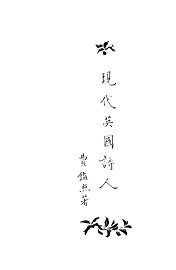 現代英國詩人
費鑑照著